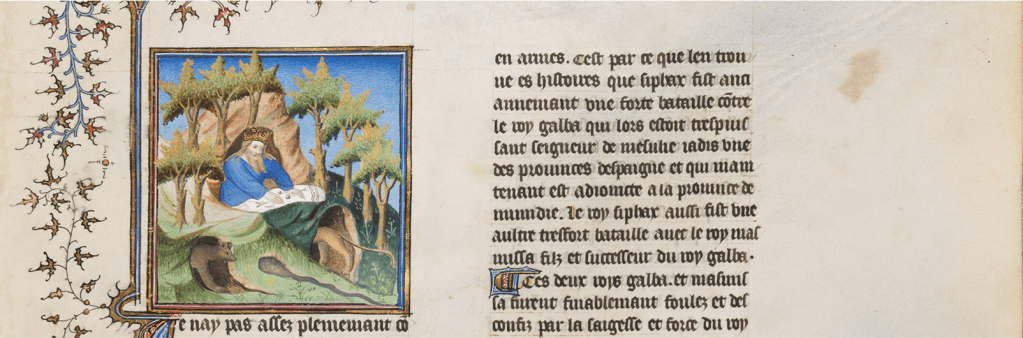 e nay pas assez co
en armes. Cest par ce que len trou
ue es histoires que siphax fist anci
annemant vne forte bataille cõtre
le roy galba qui lors estoit trespuis
sant seigneur de mesulie iadis vne
des prouinces despaigne et qui main
tenant est adioincte a la prouince de
numidie. Le roy siphax aussi fist vne
aultre tresfort bataille auec le roy mas
nissa filz et successeur du roy galba.
Ces deux roys galba. et masinis
sa furent finablemant foulez et des
confiz par la saigesse et force du roy